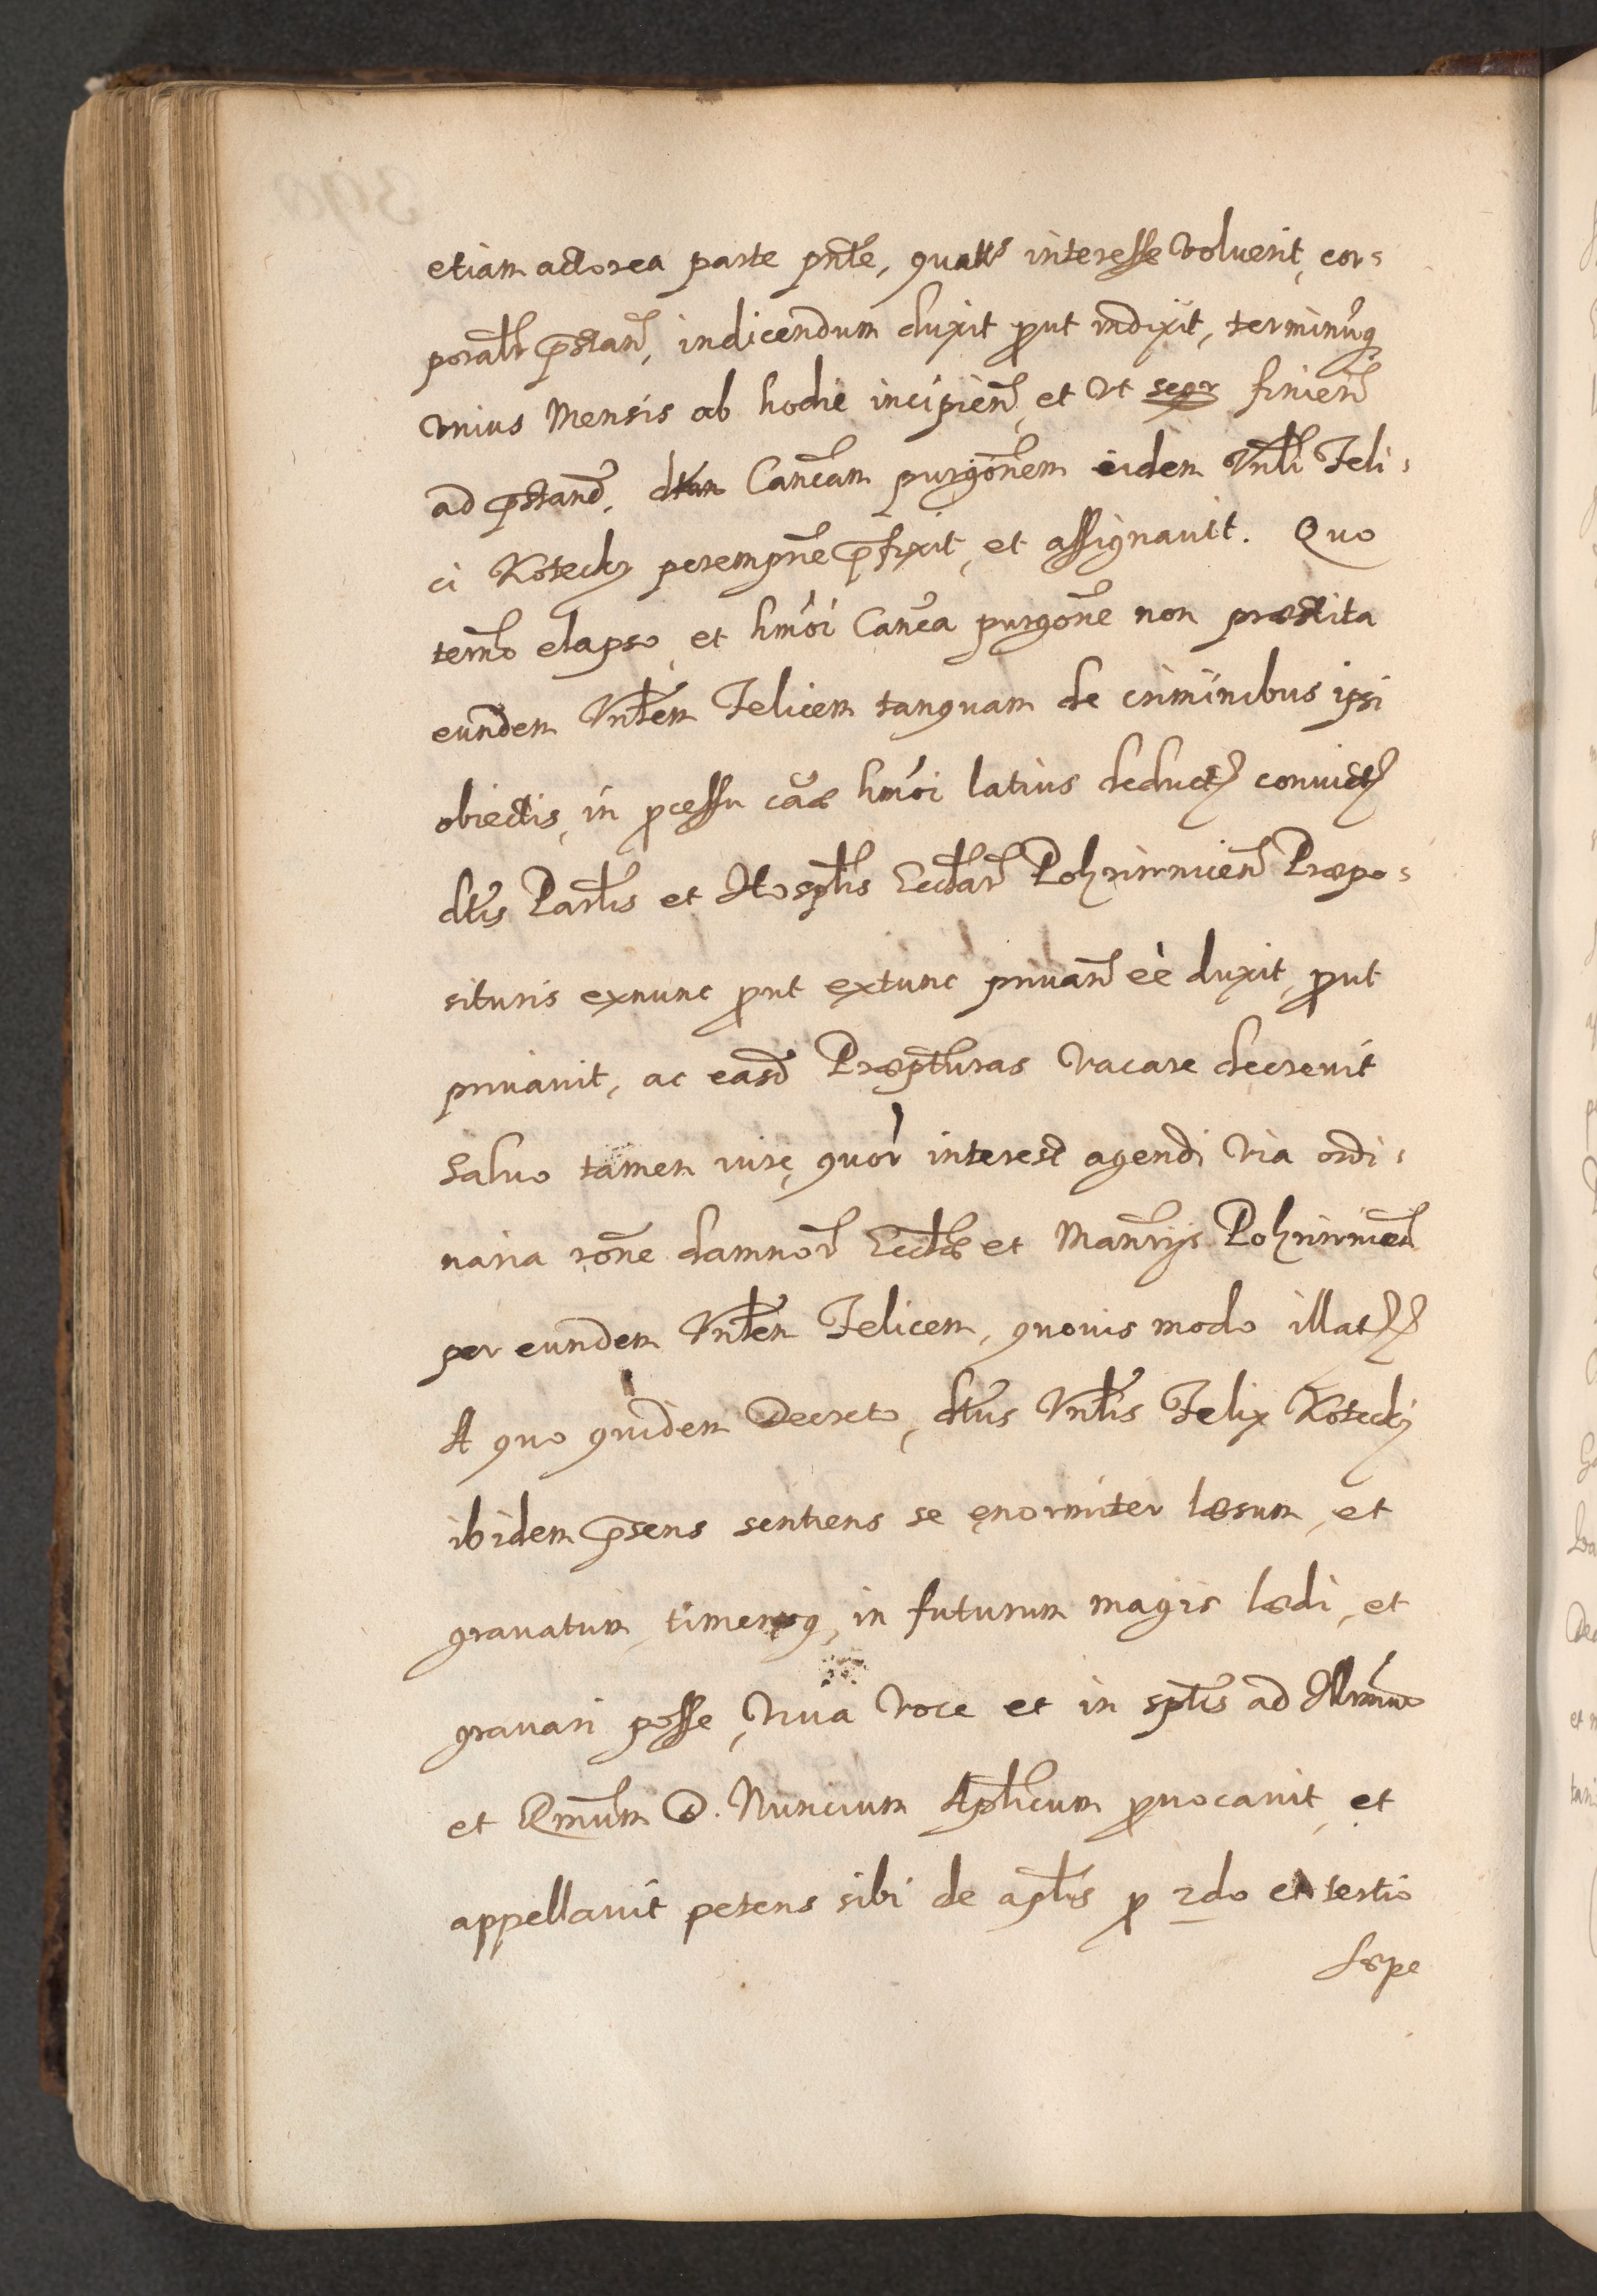 etiam actorea parte pnte, quatts interesse voluerit, cor=
poralr pstan, indicendum duxit prout indixit, terminumq
vnius Mensis ab hodie incipien, et vt seqr finien
ad pstand. dtam Cancam purgonem eidem Vnbli Feli=
ci Kotecky peremprie pfixit, et assignauit. Quo
termo elapso, et hmoi Canca purgone non præstita
eundem Vnblem Felicem tanquam de criminibus ipsi
obiectis, in processu causæ hmoi latius deductis convictis
dtis Parlis et Hosptlis Eccliar Pohrimicen Præpo=
situris exnunc prout extunc privan eè duxit, prout
priuauit, ac easd Præpturas vacare decreuit
Saluo tamen iure, quor interest agendi via ordi=
naria rone damnor Eccliæ et Mansrijs Pohrimicen
per eundem Vnblem Felicem, quouis modo illatis
A quo quidem Decreto, dtus Vnblis Felix Kotecky
ibidem psens sentiens se enormiter læsum, et
grauatum, timensq, in futurum magis lædi, et
grauari posse, Viua voce et in sptis ad Illrmum
et Rmum D. Nuncium Aplicum prouocauit, et
appellauit petens sibi de aplis pro 2do et tertio
sæpe